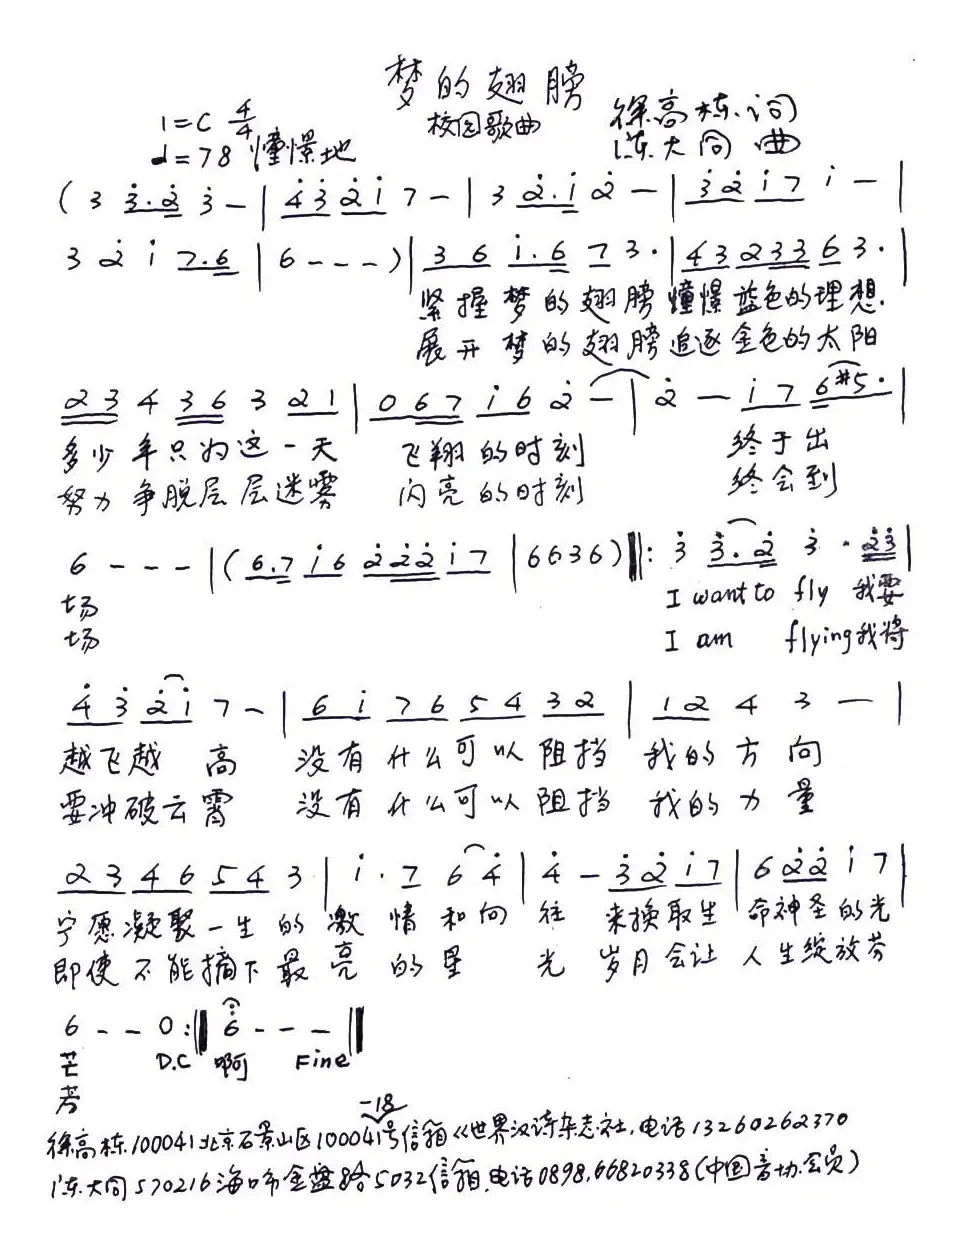 梦的翅膀
校园歌曲
1=C 4/4
徐高栋 词
♩=78 憧憬地
陈大同 曲
(3 3̇.2̇ 3̇ - | 4̇3̇ 2̇1̇ 7 - | 3 2̇.1̇ 2̇ - | 3̇2̇ 1̇7 1̇ - |
3 2̇ 1̇ 7.6 | 6 - - - ) | 3 6 1̇.6 7 3. | 43 233 6 3. |
紧握梦的翅膀 憧憬蓝色的理想.
展开梦的翅膀 追逐金色的太阳
23 4 36 3 21 | 067 1̇6 2̇ - | 2̇ - 1̇7 6#5. |
多少年只为这一天 飞翔的时刻 终于出
努力争脱层层迷雾 闪亮的时刻 终会到
6 - - - | (6.7 1̇6 2̇2̇2̇ 1̇7 | 6636) ‖: 3̇ 3̇.2̇ 3̇ . 2̇3̇ |
场 I want to fly 我要
场 I am flying 我将
4̇3̇ 2̇1̇ 7 - | 61̇ 76 54 32 | 12 4 3 - |
越飞越高 没有什么可以阻挡 我的方向
要冲破云霄 没有什么可以阻挡 我的力量
23 46 54 3 | 1̇. 7 6 4̇ | 4̇ - 3̇2̇ 1̇7 | 6 2̇2̇ 1̇ 7 |
宁愿凝聚一生的激情和向往 来换取生命神圣的光
即使不能摘下最亮的星光 岁月会让人生绽放芬
6 - - 0 :‖ 6̇ - - - ‖
芒 D.C 啊 Fine
芳
-18
徐高栋.100041北京石景山区100041号信箱《世界汉诗杂志社.电话13260262370
陈大同570216海口市金盘8号5032信箱.电话0898.66820338(中国音协会员)